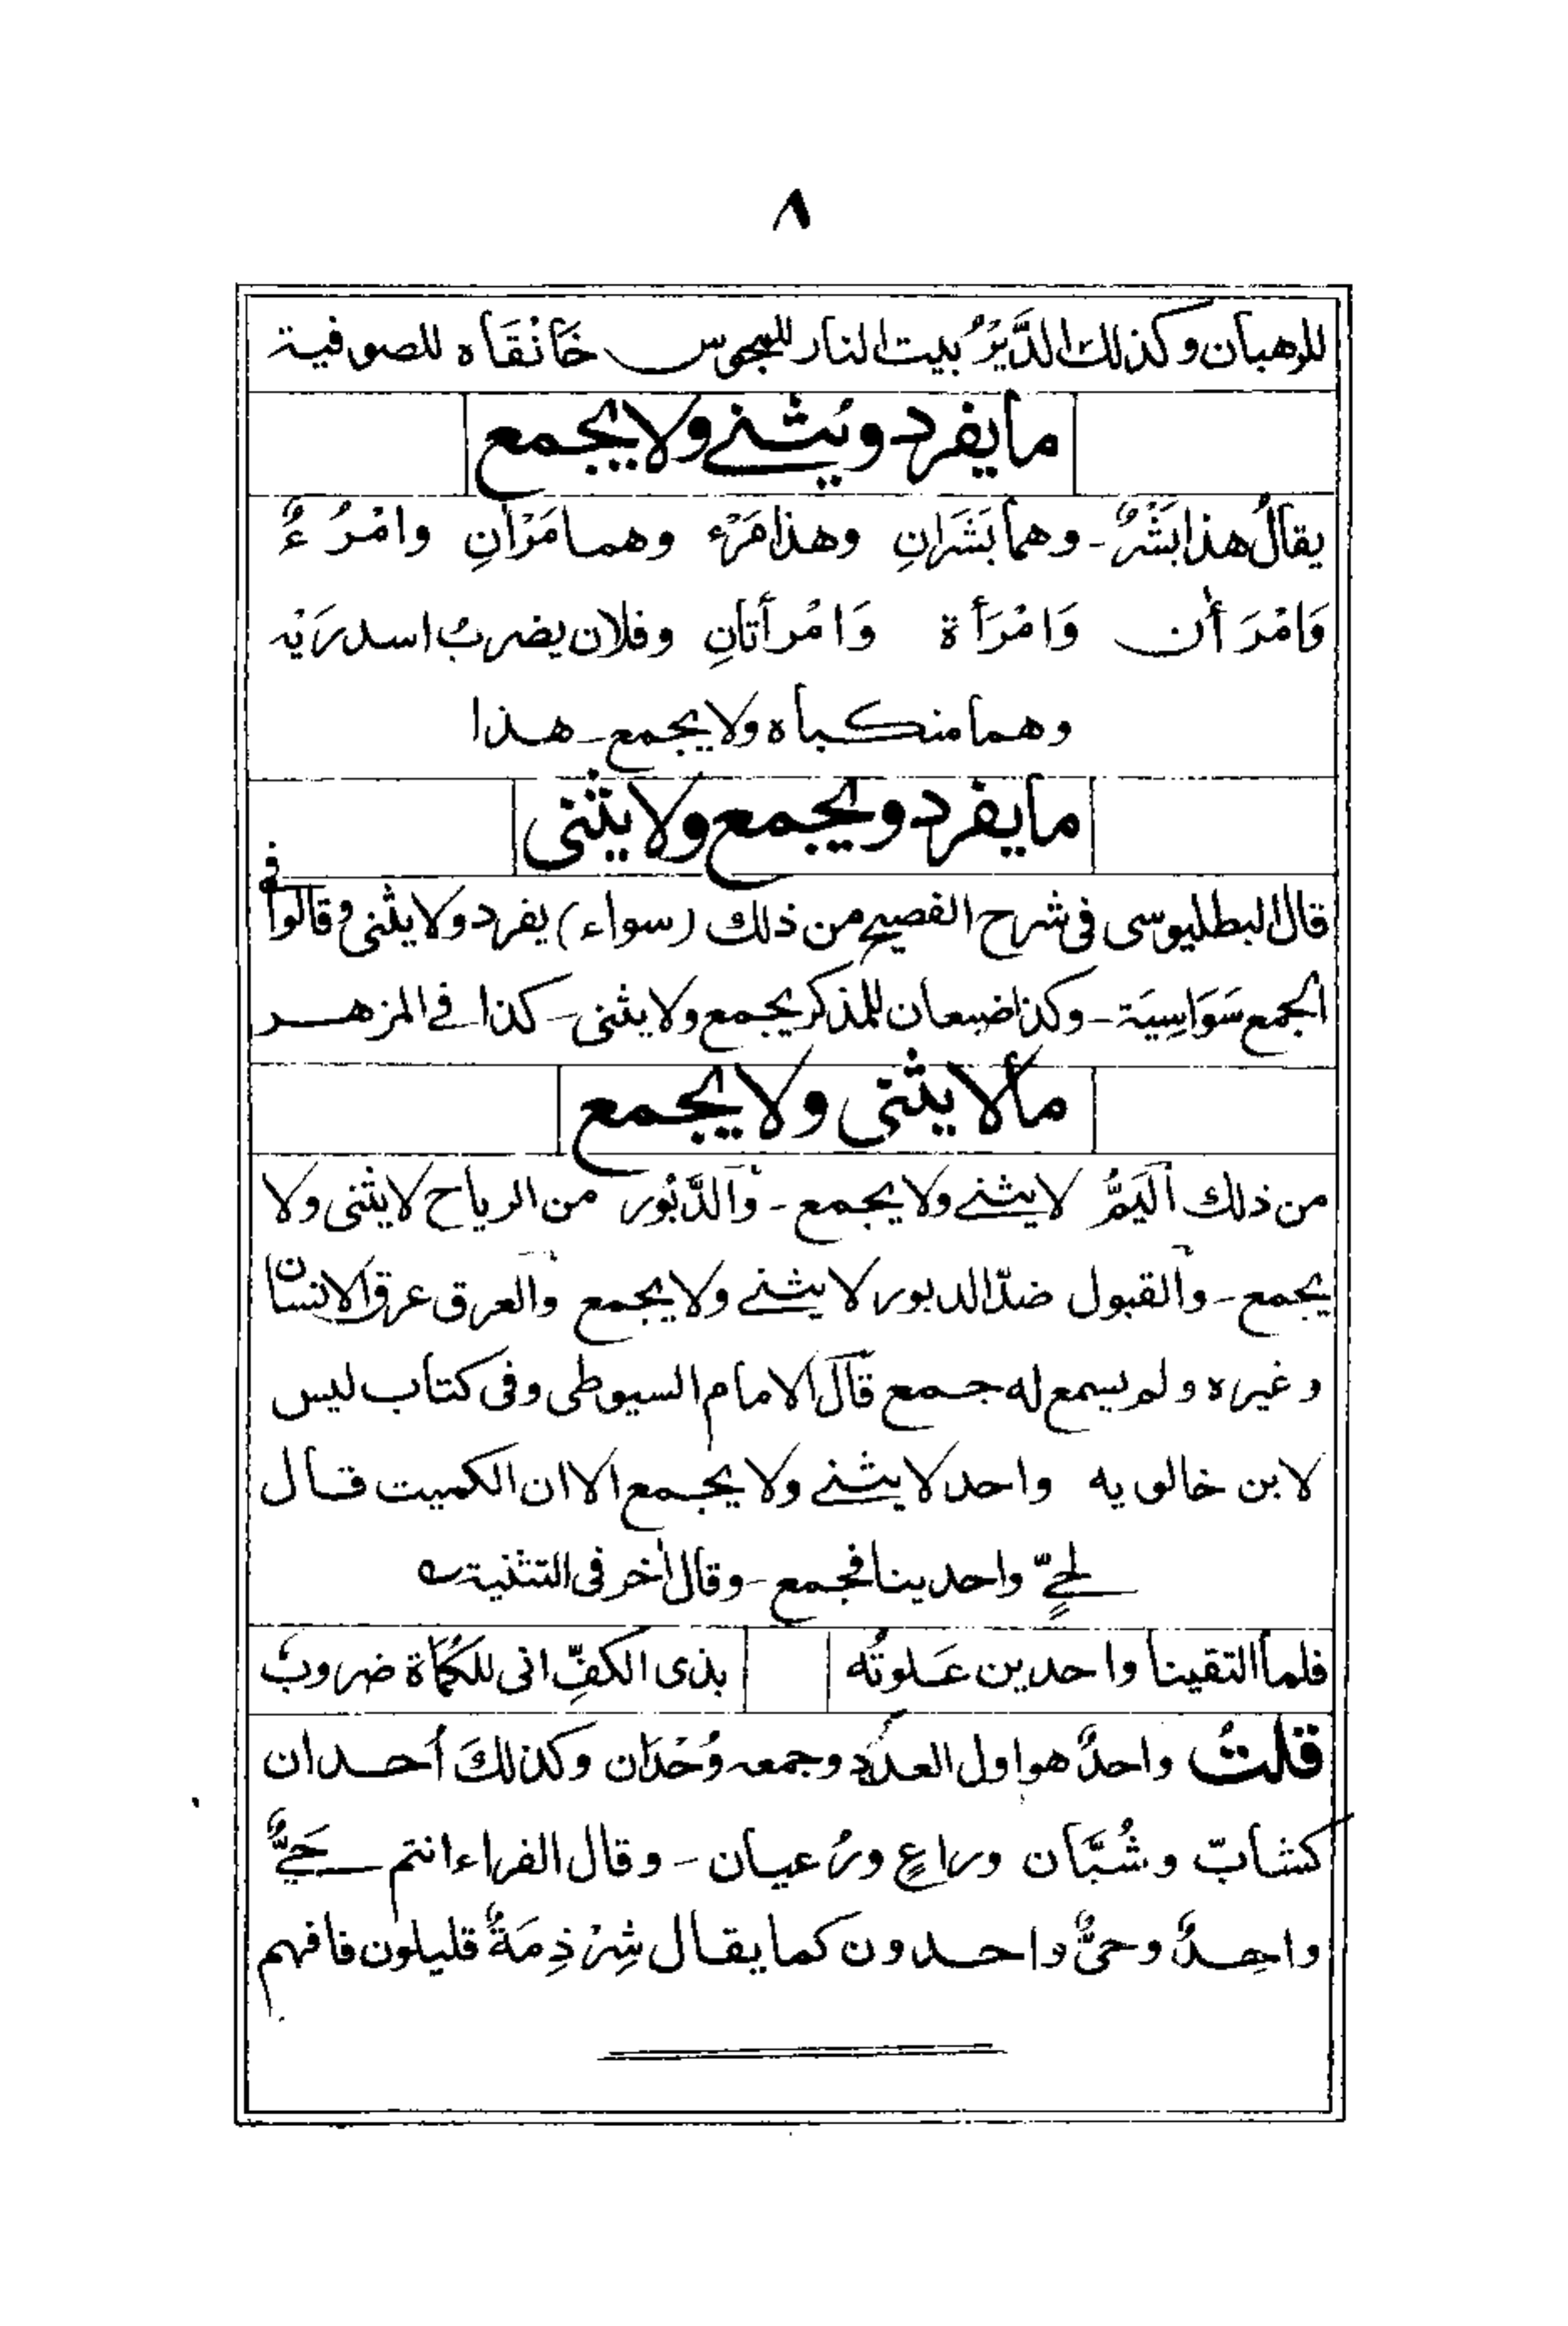 ٨
للرهبان وكذلك الدَّيْرُ بيت النار للمجوس خَانْقَاه للصوفية
ما يفرد ويثنى ولا يجمع
يقالُ هذا بَشَرٌ - وهما بَشَرانِ وهذا مَرْء وهما مَرْانِ وامْرُءٌ
وَامْرَأٰن وَامْرَأَة وَامْرأَتانِ وفلان يضربُ اسدرَيْه
وهما منكباه ولا يجمع - هذا
ما يفرد ويجمع ولا يثنى
قال البطليوسى فى شرح الفصيح من ذلك (سواء) يفرد ولا يثنى وقالوا فى
الجمع سَوَاسِيَة - وكذا ضبعان للمذكر يجمع ولا يثنى - كذا فى المزهر
ما لا يثنى ولا يجمع
من ذلك اَليَمُّ لا يثنى ولا يجمع - والدَّبُور من الرياح لا يثنى ولا
يجمع - والقبول ضدّ الدبور لا يثنى ولا يجمع والعرق عرق الانسان
وغيره ولم يسمع له جمع قال الامام السيوطى وفى كتاب ليس
لابن خالويه واحد لا يثنى ولا يجمع الا ان الكميت قال
لحيٍّ واحدينا فجمع - وقال أخر فى التثنية
فلما التقينا واحدين عَلوتُه بذى الكفِّ انى للكُمَاة ضروبُ
قلتُ واحدٌ هو اول العدَد وجمعه وُحْدَان وكذلكَ أُحدان
كشابّ وشُبَّان وراعٍ ورُعيان - وقال الفراء انتم حَيٌّ
واحِدٌ وحىٌّ واحدون كما يقال شِرْذِمَةٌ قليلون فافهم